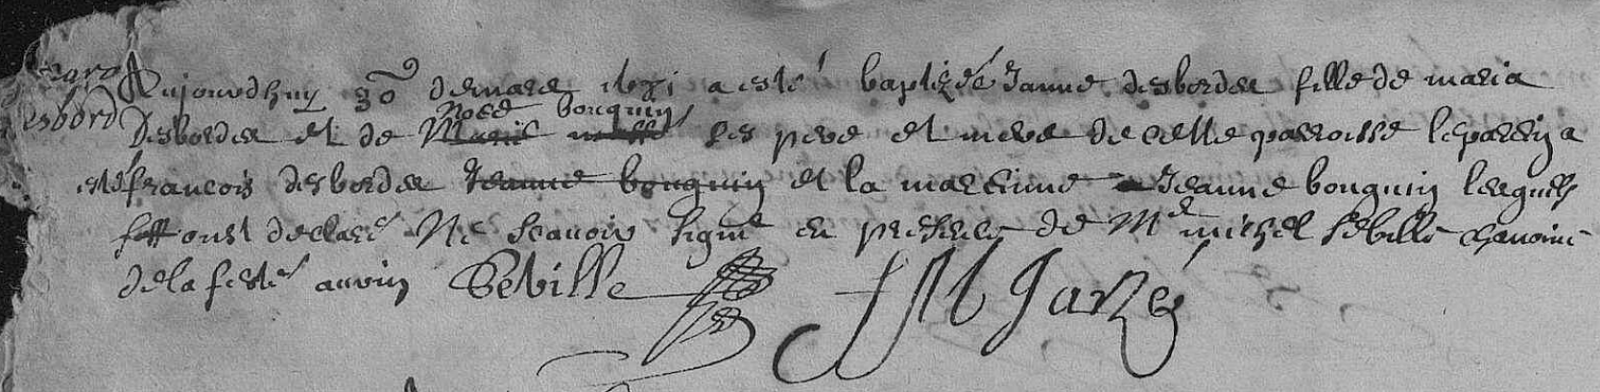 Aujourdhuy 30 de mars a esté baptizéé Janne desbordes fille de maria
esbord
Desbordes et de Noee bouquin ses pere et mere de cette parroisse le parrin a
esté francois desbordes Jeanne bouquin et la marinne Jeanne bouquin lesquels
ont declaré Ne scauoir signé en presence de Mr michel Sebille chanoine
de la ferté auvin Sebille M Jarzé